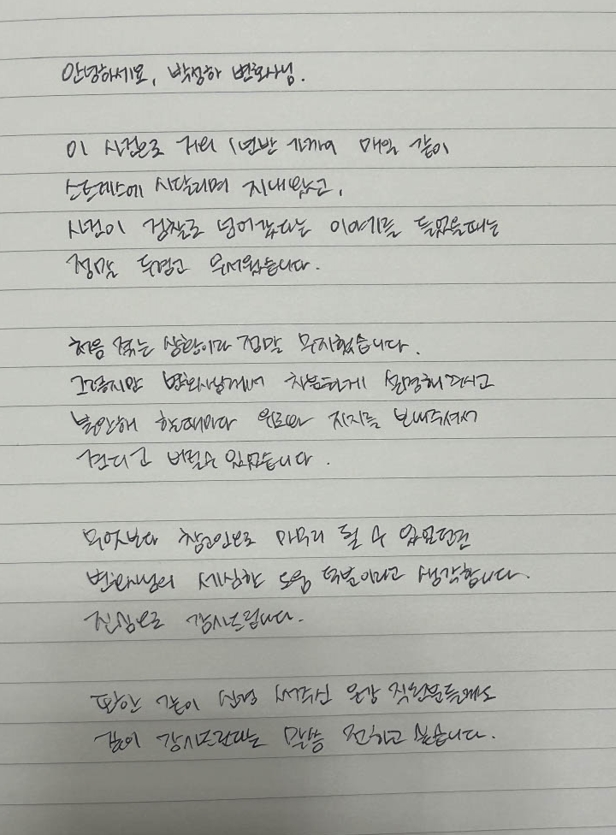 안녕하세요, 박성하 변호사님.
이 사건으로 거의 1년반 가까이 매일 같이
스트레스에 시달리며 지내왔고,
사건이 검찰로 넘어갔다는 이야기를 들었을때는
정말 두렵고 무서웠습니다.
처음 겪는 상황이라 정말 무지했습니다.
그렇지만 변호사님께서 차분하게 설명해주시고
불안해 할때마다 위로와 지지를 보내주셔서
견디고 버틸수 있었습니다.
무엇보다 참고인으로 마무리 될 수 있었던건
변호사님의 세심한 도움 덕분이라고 생각합니다.
진심으로 감사드립니다.
또한 같이 신경 써주신 온강 직원분들께도
깊이 감사드린다는 말씀 전하고 싶습니다.